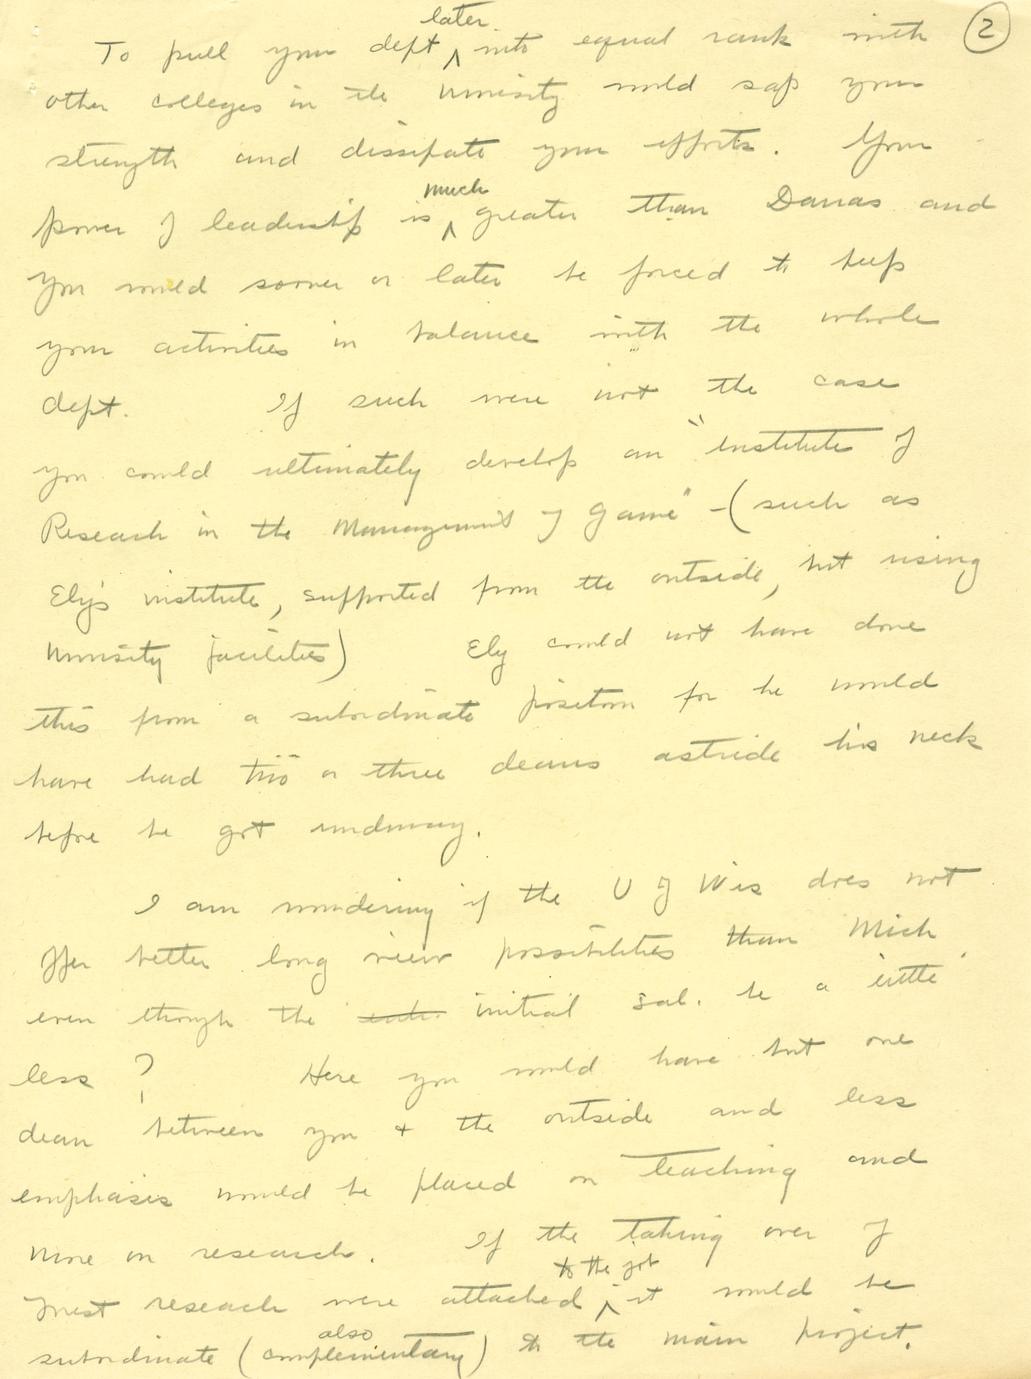 2
To pull your dept ^later into equal rank with
other colleges in the University would sap your
strength and dissipate your efforts. Your
power of leadership is ^much greater than Danas and
you would sooner or later be forced to keep
your activities in balance with the whole
dept. If such were not the case
you could ultimately develop an "institute of
Reseach in the Management of Game" - (such as
Ely's institute, supported from the outside, but using
University facilities) Ely could not have done
this from a subordinate position for he would
have had two or three deans astride his neck
before he got underway.
I am wondering if the U of Wis does not
offer better long view possibilities than Mich
even though the initial sal. be a little
less? Here you would have but one
dean between you + the outside and less
emphasis would be placed on teaching and
more on research. If the taking over of
reseach were attached ^to the job it would be
subordinate (also complementary) to the main project.